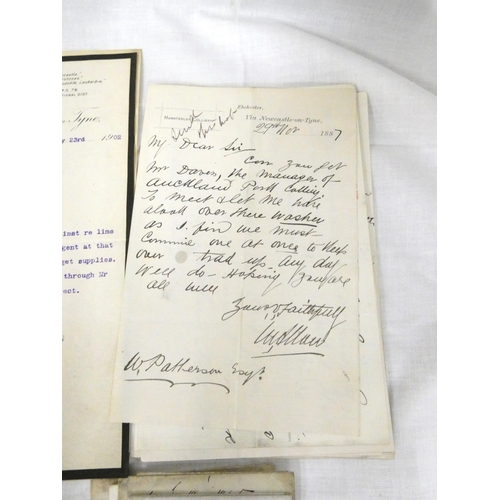 y 23rd 1902
inst re lime
gent at that
get supplies.
through Mr
ect.
Ebchester,
Via Newcastle-on-Tyne,
29th Nov 1887
My Dear Sir
Can you get
Mr Davon, the manager of
Auckland Park Colliery
To meet & let me have
a look over there washer
as I fin we must
Commie one at once to keep
our trad up any day
Well do - Hoping you are
all well
Yours faithfully
W. Patterson Esqr.